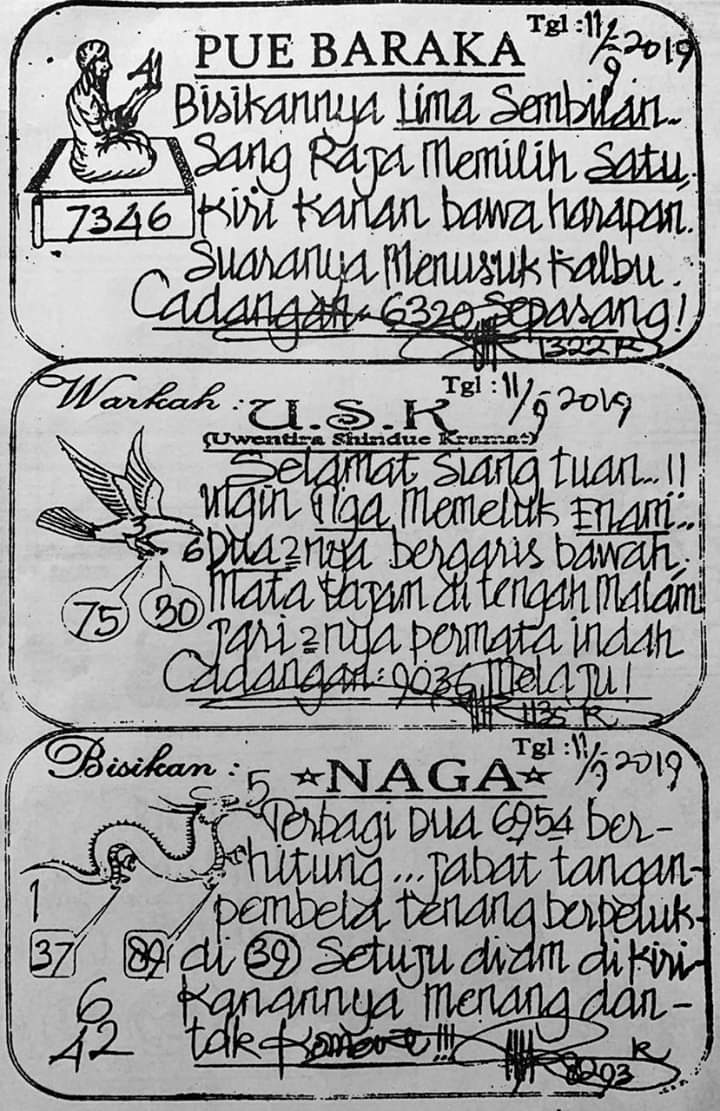 Tgl : 11/9 2019
PUE BARAKA
4
Bisikannya Lima Sembilan..
Sang Raja Memilih Satu,
7346
Kiri Kanan bawa harapan.
Suaranya Menusuk Kalbu.
Cadangan - 6320 Sepasang!
1322 R
Tgl : 11/9 2019
Warkah : U.S.K
(Uwentira Shindue Kramat)
Selamat Siang tuan...!!
ingin Tiga Memeluk Enam...
6
Dua2nya bergaris bawah.
75 30
Mata tajam di tengah Malam
Jari2nya permata indah
Cadangan : 9036 Melaju!
1135 R
Tgl : 11/9 2019
Bisikan : ☆NAGA☆
5
Terbagi Dua 6954 ber-
hitung... Jabat tangan-
1
pembela tenang berpeluk-
37 89
di 39 Setuju diam di kiri-
6
Kanannya Menang dan-
42
tak !!!
8293 R